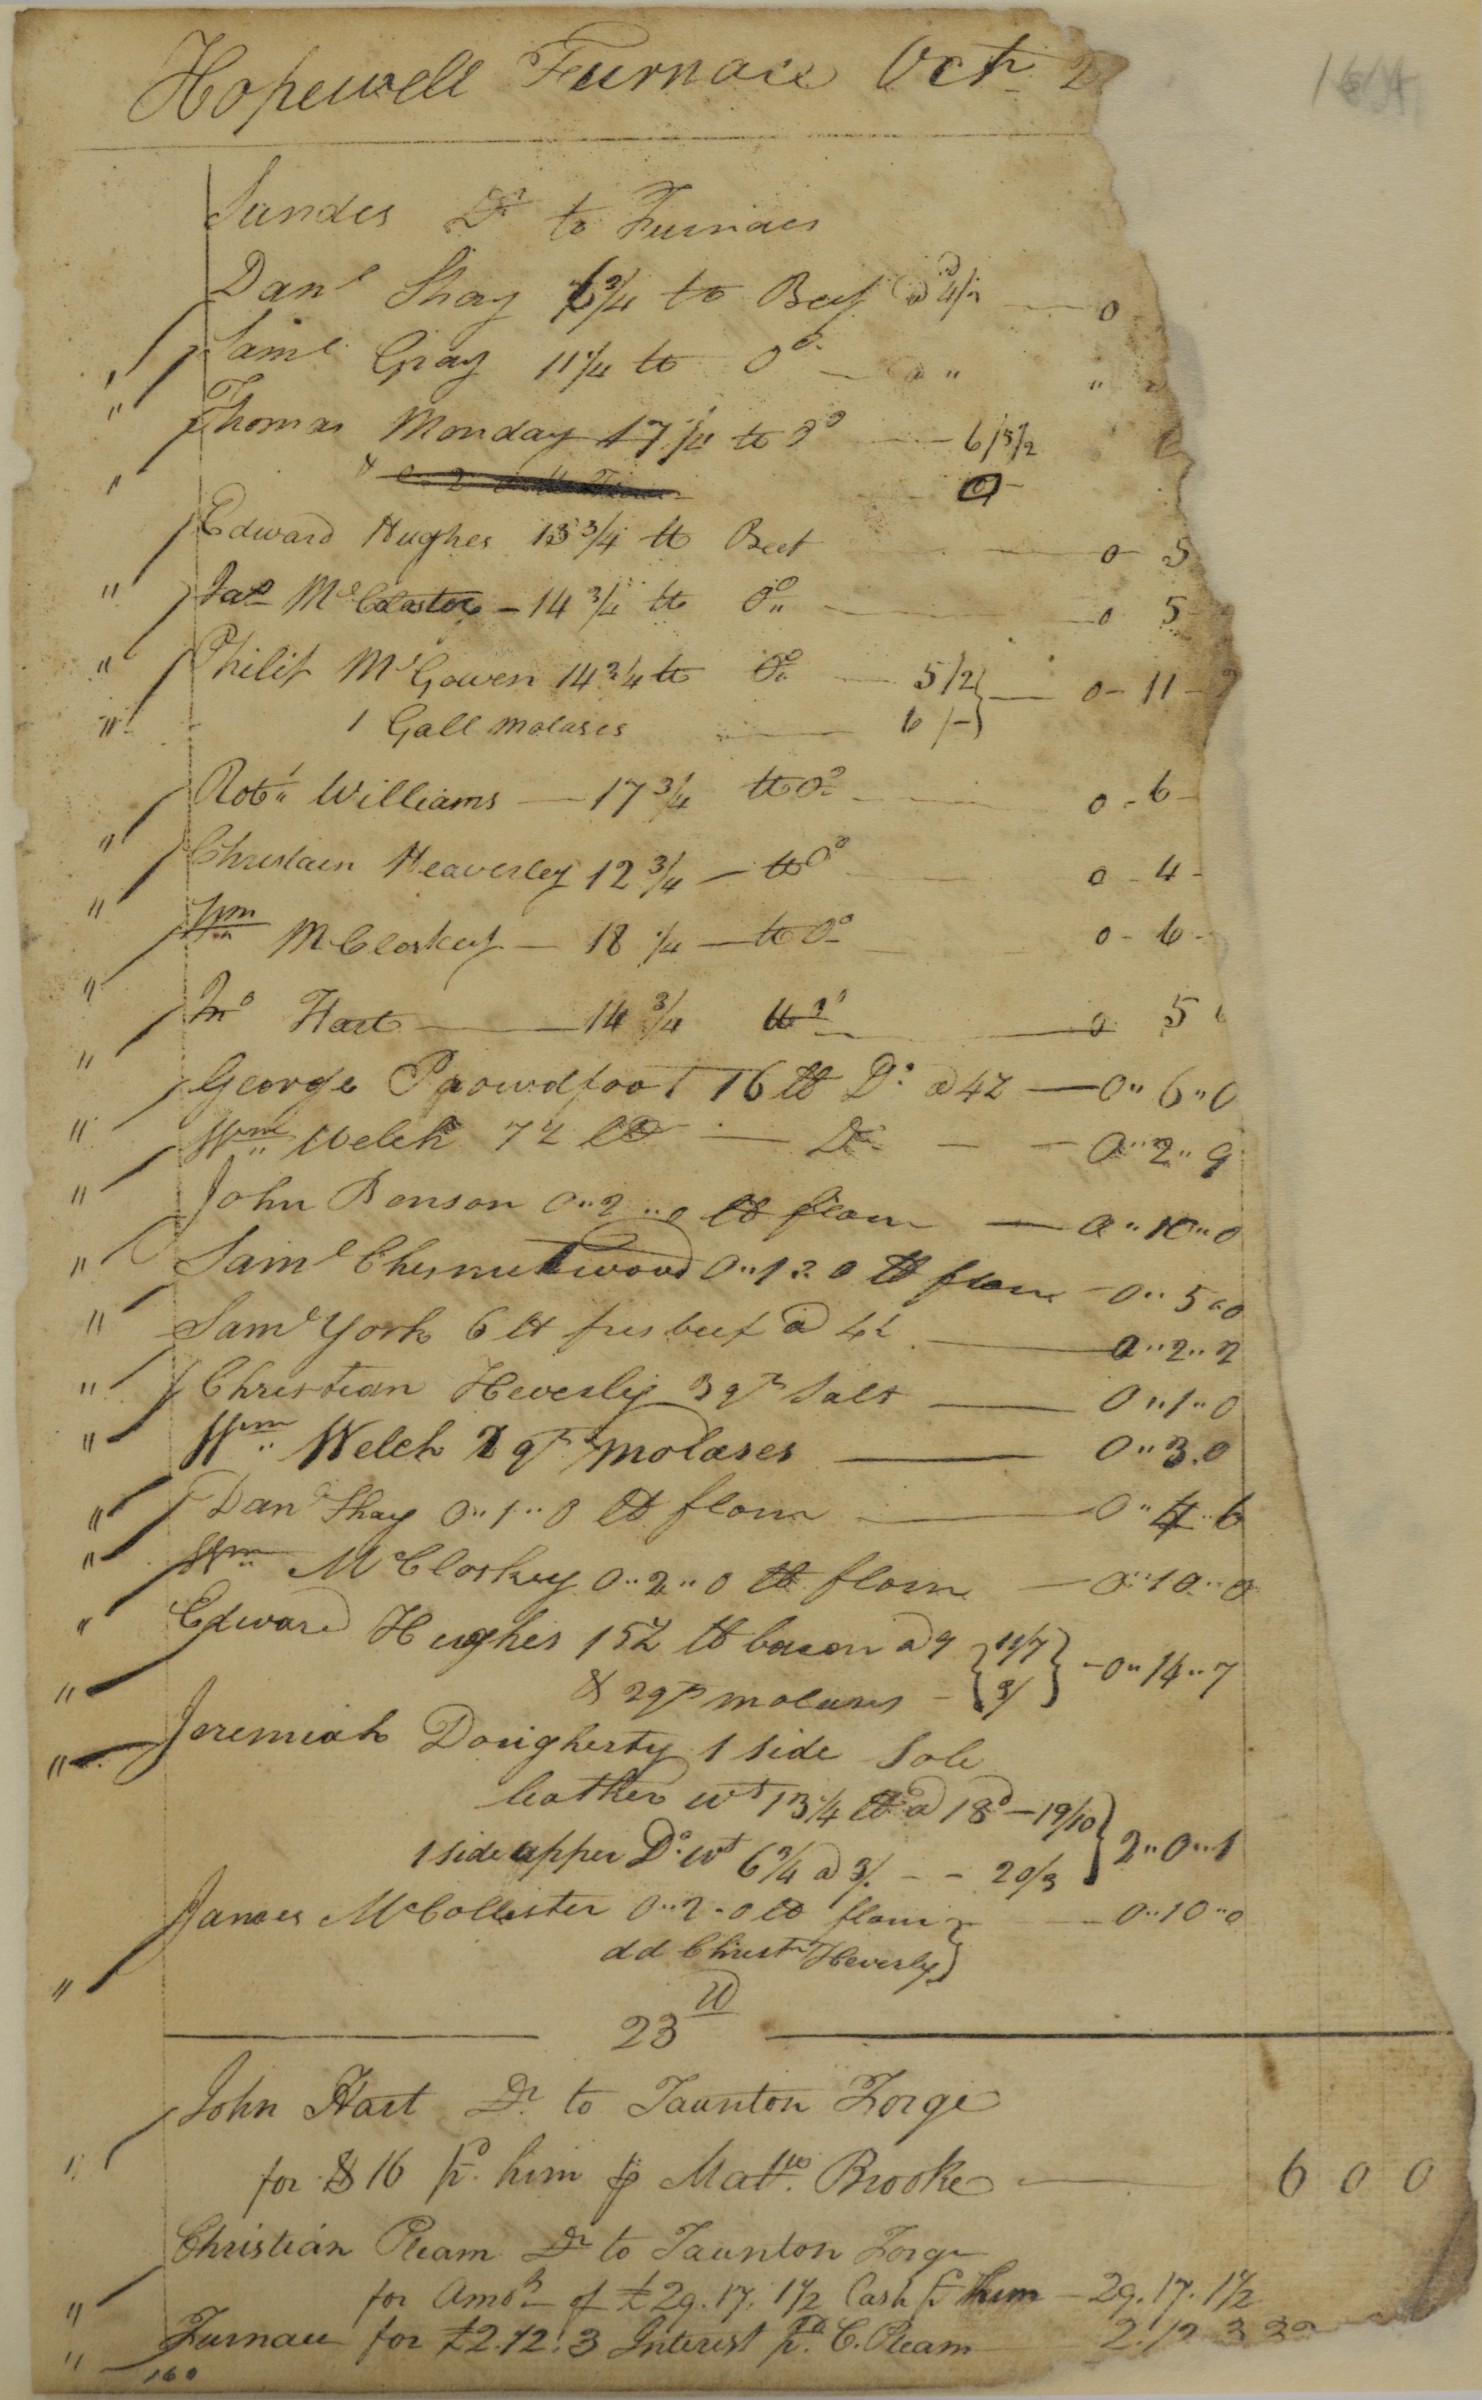 Hopewell Furnace Octr 2
Sundes Dr to Furnace
Danl Shay 6 3/4 lb Beef @ 4/2 — 0
Saml Gray 11 1/4 lb Do — @ " "
Thomas Monday 17 1/4 lb Do — 6/5 1/2
Edward Hughes 13 3/4 lb Beef — 0 5
Jas McColaster — 14 3/4 lb Do — 0 5
Philip McGowen 14 3/4 lb Do — 5/2 } — 0 - 11 -
1 Gall molases — 6/- }
Robt Williams — 17 3/4 lb Do — 0 - 6 -
Christain Heaverley 12 3/4 — lb Do 0 - 4 -
Wm McCloskey — 18 1/4 — lb Do 0 - 6 -
Jno Hart — 14 3/4 lb Do — 0 5
George Prowdfoot 16 lb Do @ 4½ — 0 " 6 " 0
Wm Welch 7½ lb — Do — 0 " 2 " 9
John Benson 0 " 2 " 0 lb flour — 0 " 10 " 0
Saml Chesnutwood 0 " 1 " 0 lb flour — 0 " 5 " 0
Saml York 6 lb fres beef @ 4½ — 0 " 2 " 2
Christian Heverly 3 qts Salt — 0 " 1 " 0
Wm Welch 2 qts molases — 0 " 3 . 0
Danl Shay 0 " 1 " 0 lb flour — 0 " 4 " 6
Wm McCloskey 0 " 2 " 0 lb flour — 0 " 10 " 0
Edward Hughes 15½ lb bacon @ 9 { 11/7 } — 0 " 14 " 7
& 2 qts molases — { 3/ }
Jeremiah Dougherty 1 side Sole
leather wt 13 1/4 lb @ 18d — 19/10 } 2 " 0 " 1
1 side upper Do wt 6 3/4 @ 3/. — — 20/3 }
James McCollester 0 " 2 " 0 lb flour } — 0 " 10 " 0
dd Christn Heverly }
23d
John Hart Dr to Taunton Forge
for $16 pd. him p Matths. Brooke — 6 0 0
Christian Pleam Dr to Taunton Forge
for Amot of £29.17.1½ Cash pd him — 29.17.1½
Furnace for £2.12.3 Interest pd. C. Pleam 2.12 3
160